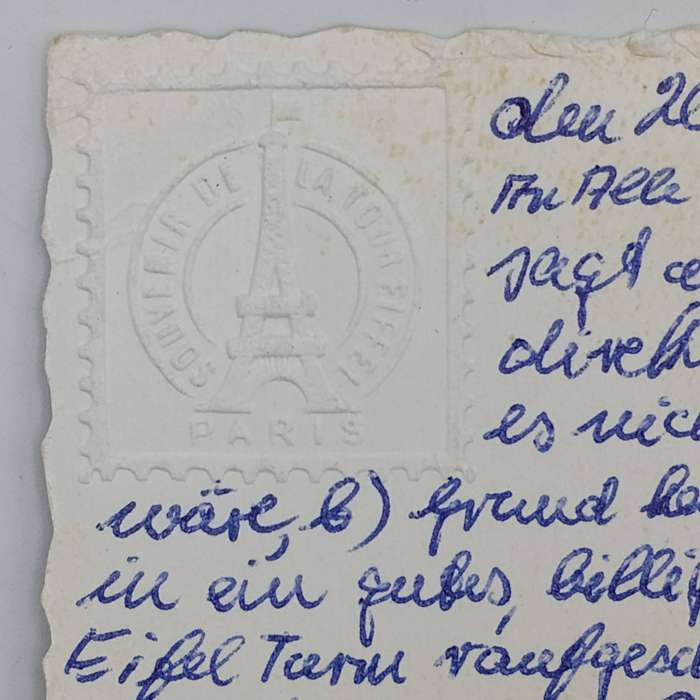 SOUVENIR DE LA TOUR EIFFEL
PARIS
den 20
An Alle
sagt
direkt
es nic
wäre, b) Grund
in ein gutes, billi
Eifel Turm raufgesch